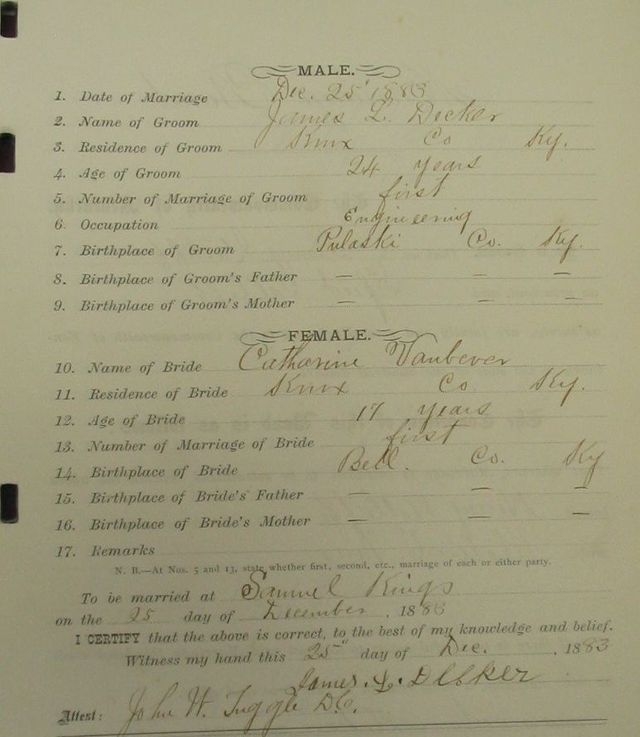 MALE.
1. Date of Marriage Dec. 25" 1883
2. Name of Groom James L. Decker
3. Residence of Groom Knox Co Ky.
4. Age of Groom 24 years
5. Number of Marriage of Groom first
6. Occupation Engineering
7. Birthplace of Groom Pulaski Co. Ky.
8. Birthplace of Groom's Father — — —
9. Birthplace of Groom's Mother — — —
FEMALE.
10. Name of Bride Catharine Vanbever
11. Residence of Bride Knox Co Ky.
12. Age of Bride 17 years
13. Number of Marriage of Bride first
14. Birthplace of Bride Bell. Co. Ky
15. Birthplace of Bride's Father — — —
16. Birthplace of Bride's Mother — — —
17. Remarks
N. B.—At Nos. 5 and 13, state whether first, second, etc., marriage of each or either party.
To be married at Samuel Kings
on the 25 day of December, 1883
I CERTIFY that the above is correct, to the best of my knowledge and belief.
Witness my hand this 25" day of Dec., 1883
James L. Decker
Attest: John W. Tuggle D.C.